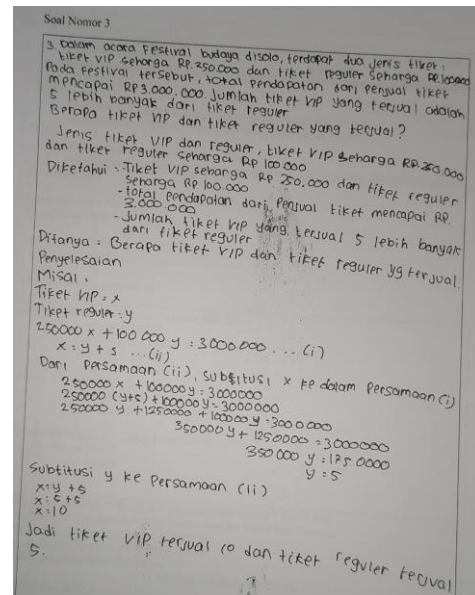 Soal Nomor 3
3. Dalam acara Festival budaya disolo, terdapat dua jenis tiket:
tiket VIP seharga RP.250.000 dan tiket reguler seharga RP.100000
Pada festival tersebut, total pendapatan dari penjual tiket
mencapai RP3.000.000. Jumlah tiket VIP yang terjual adalah
5 lebih banyak dari tiket reguler
Berapa tiket VIP dan tiket reguler yang terjual?
Jenis tiket VIP dan reguler, tiket VIP seharga RP.250.000
dan tiket reguler seharga RP 100 000
Diketahui: -Tiket VIP seharga RP 250.000 dan tiket reguler
seharga RP 100.000
-total pendapatan dari penjual tiket mencapai RP.
3.000.000
-Jumlah tiket VIP yang terjual 5 lebih banyak
dari tiket reguler
Ditanya: Berapa tiket VIP dan tiket reguler yg terjual.
Penyelesaian
Misal.
Tiket VIP = x
Tiket reguler: y
250000 x + 100 000 y = 3000000 ... (i)
x = y + 5 ... (ii)
Dari persamaan (ii), subtitusi x ke dalam persamaan (i)
250000 x + 100000 y = 3000000
250000 (y+5) + 100000 y = 3000000
250000 y + 1250000 + 100000 y = 3000000
350000 y + 1250000 = 3000000
350 000 y = 175 0000
y = 5
Subtitusi y ke persamaan (ii)
x = y + 5
x = 5 + 5
x = 10
Jadi tiket VIP terjual 10 dan tiket reguler terjual
5.